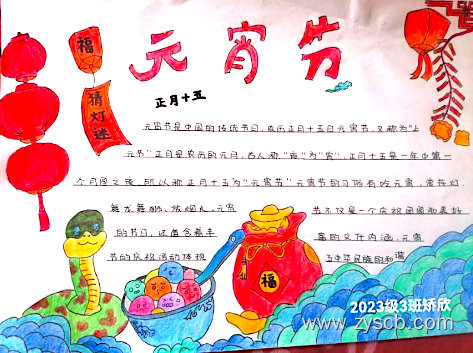 元宵节
福
猜灯谜
正月十五
元宵节是中国的传统节日,农历正月十五日元宵节,又称为"上
元节"正月是农历的元月,古人称"夜"为"宵",正月十五是一年中第一
个月圆之夜,所以称正月十五为"元宵节"元宵节的习俗有吃元宵,赏花灯
舞龙舞狮,放烟火,元宵 节不仅是一个庆祝团圆和美好
的节日,还蕴含着丰 富的文化内涵,元宵
节的庆祝活动体现 了中华民族的和谐
福
2023级3班矫欣
www.zyscb.com